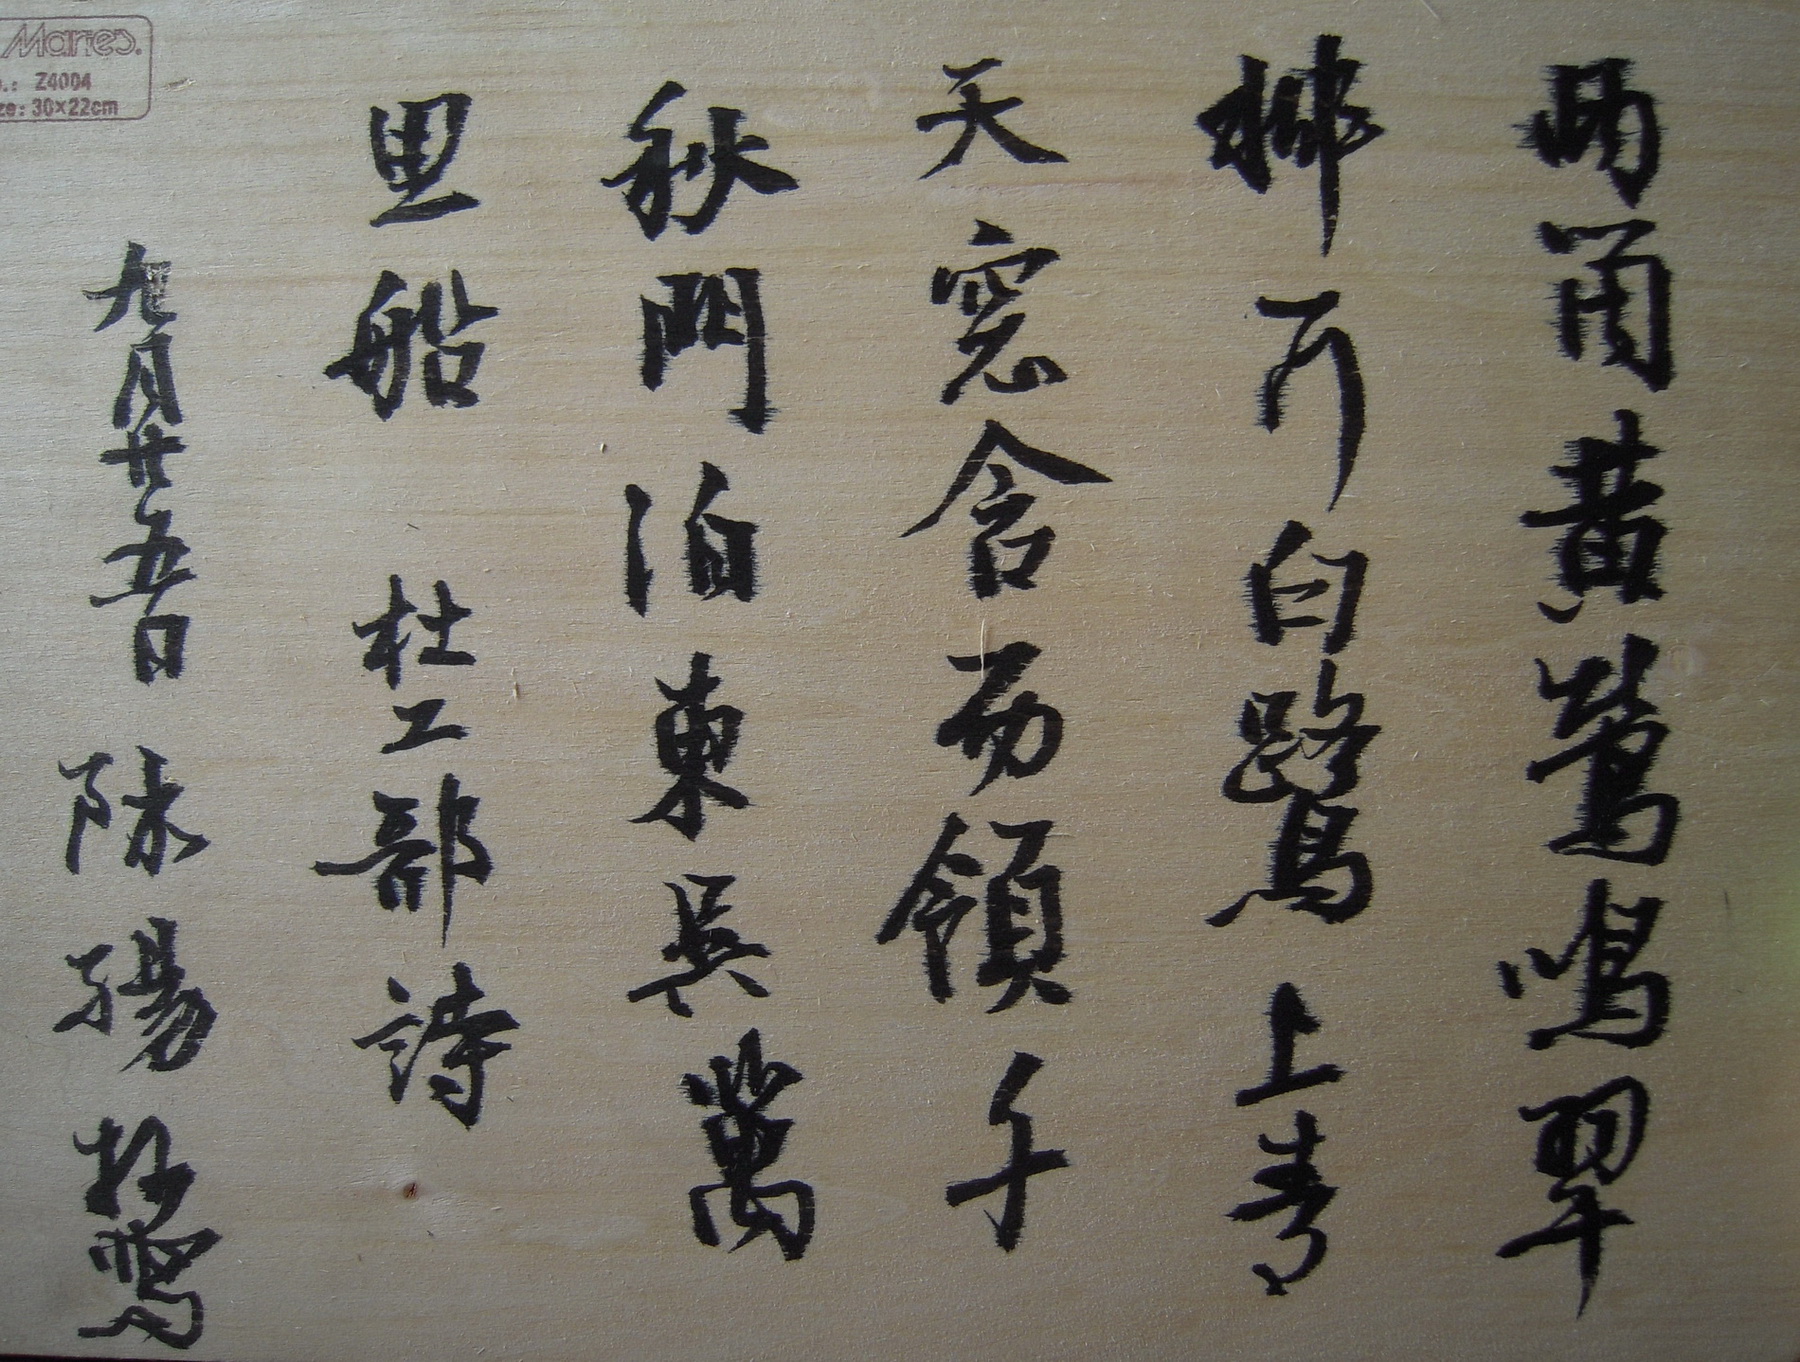 Marie's.
o.: Z4004
ze: 30×22cm
兩箇黃鶯鳴翠
柳一行白鷺上青
天窓含西領千
秋門泊東吳萬
里船 杜工部詩
九月廿五日